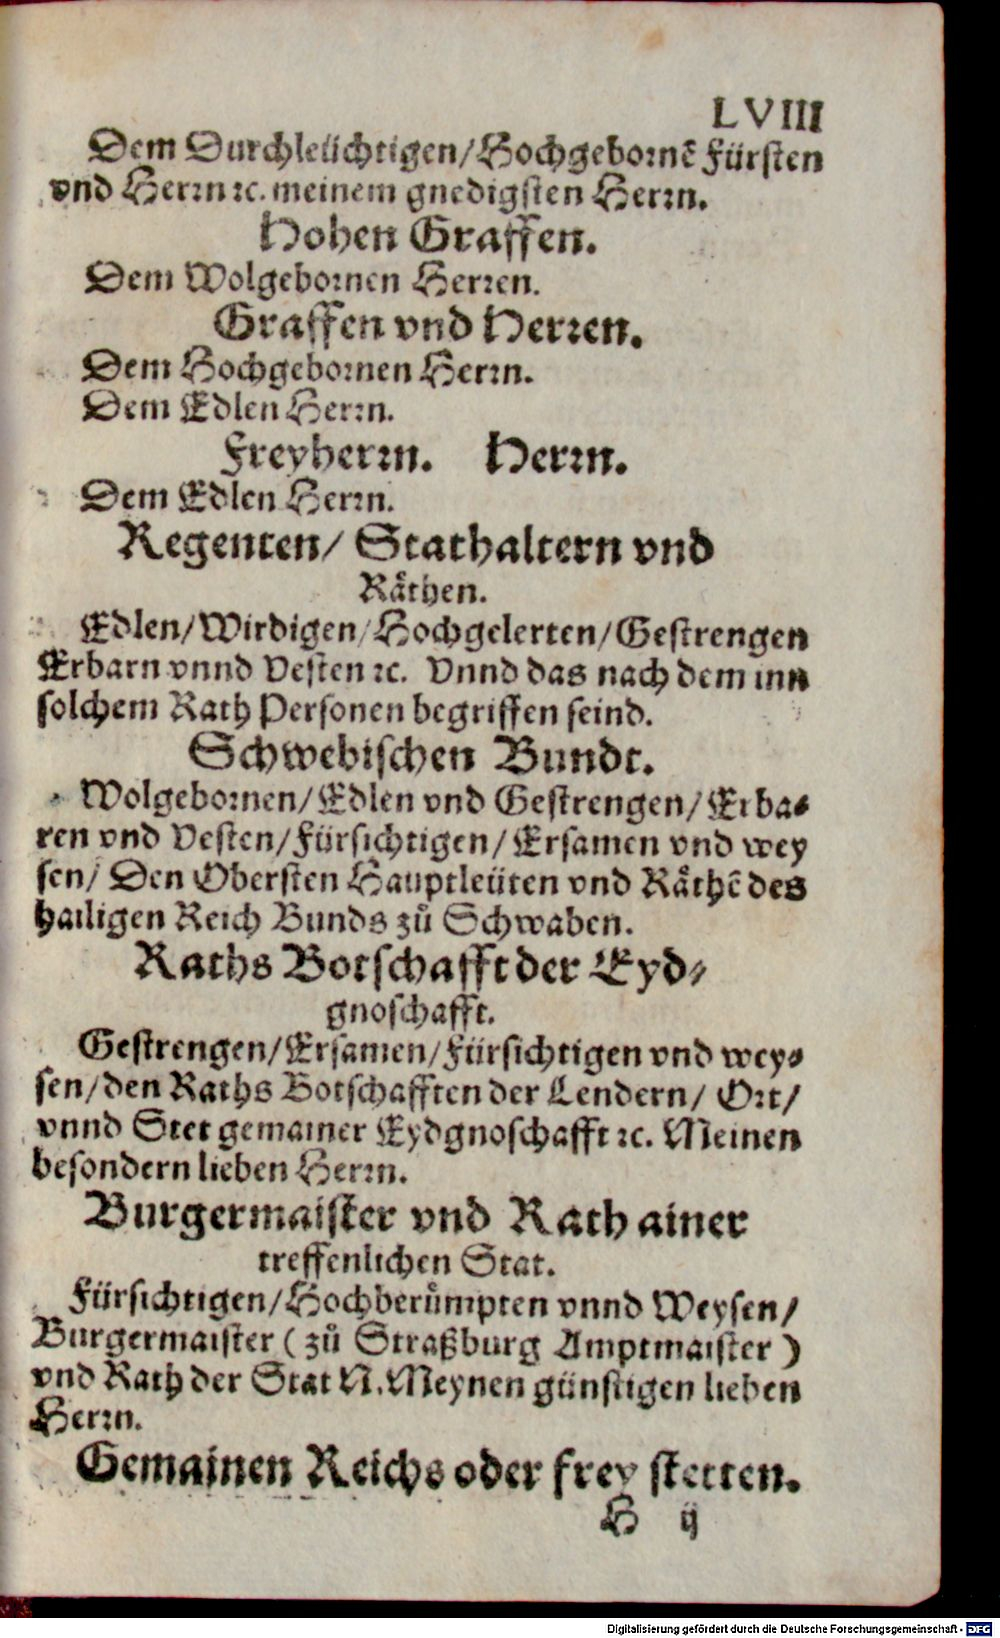 LVIII
Dem Durchleüchtigen/Hochgebornẽ Fürsten
vnd Herrn ⁊c. meinem gnedigsten Herrn.
Hohen Graffen.
Dem Wolgebornen Herren.
Graffen vnd Herren.
Dem Hochgebornen Herrn.
Dem Edlen Herrn.
Freyherrn. Herrn.
Dem Edlen Herrn.
Regenten/ Stathaltern vnd
Raͤthen.
Edlen/Wirdigen/Hochgelerten/Gestrengen
Erbarn vnnd Vesten ⁊c. Vnnd das nach dem inn
solchem Rath Personen begriffen seind.
Schwebischen Bundt.
Wolgebornen/Edlen vnd Gestrengen/Erba⸗
ren vnd Vesten/Fürsichtigen/Ersamen vnd wey
sen/ Den Obersten Hauptleüten vnd Raͤthẽ des
hailigen Reich Bunds zů Schwaben.
Raths Botschafft der Eyd⸗
gnoschafft.
Gestrengen/Ersamen/Fürsichtigen vnd wey⸗
sen/den Raths Botschafften der Lendern/ Ort/
vnnd Stet gemainer Eydgnoschafft ⁊c. Meinen
besondern lieben Herrn.
Burgermaister vnd Rath ainer
treffenlichen Stat.
Fürsichtigen/Hochberůmpten vnnd Weysen/
Burgermaister ( zů Straßburg Amptmaister )
vnd Rath der Stat N. Meynen günstigen lieben
Herrn.
Gemainen Reichs oder frey stetten.
H ij
Digitalisierung gefördert durch die Deutsche Forschungsgemeinschaft - DFG